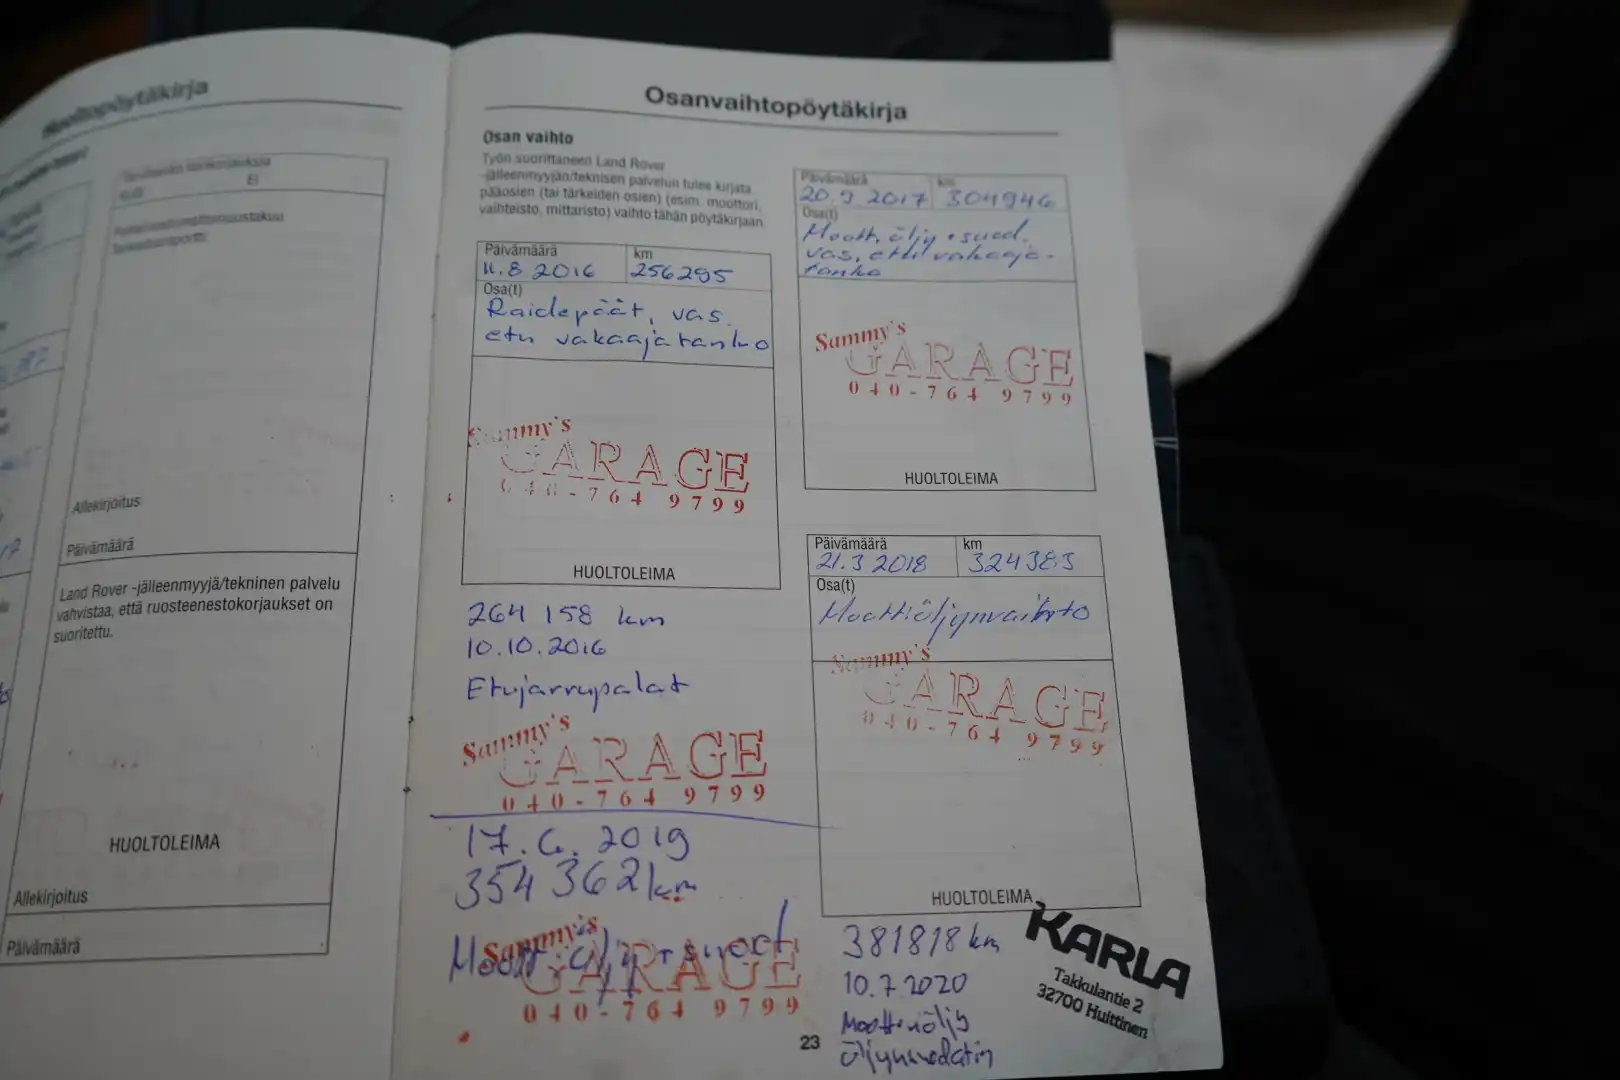 Huoltopöytäkirja
Allekirjoitus
Päivämäärä
Land Rover -jälleenmyyjä/tekninen palvelu
vahvistaa, että ruosteenestokorjaukset on
suoritettu.
HUOLTOLEIMA
Allekirjoitus
Päivämäärä
Osanvaihtopöytäkirja
Osan vaihto
Työn suorittaneen Land Rover
-jälleenmyyjän/teknisen palvelun tulee kirjata
pääosien (tai tärkeiden osien) (esim. moottori,
vaihteisto, mittaristo) vaihto tähän pöytäkirjaan.
Päivämäärä km
11.8 2016 256295
Osa(t)
Raidepäät, vas.
etu vakaajatanko
Sammy's
GARAGE
040-764 9799
HUOLTOLEIMA
264 158 km
10.10.2016
Etujarrupalat
Sammy's
GARAGE
040-764 9799
17.6.2019
354 362 km
Moott.öljy + suod.
Sammy's
GARAGE
040-764 9799
Päivämäärä km
20.9 2017 304946
Osa(t)
Moott.öljy + suod.
vas. etu vakaaja-
tanko
Sammy's
GARAGE
040-764 9799
HUOLTOLEIMA
Päivämäärä km
21.3 2018 324383
Osa(t)
Moottiöljynvaihto
Sammy's
GARAGE
040-764 9799
HUOLTOLEIMA
381818 km
10.7.2020
Moottoriöljy
öljynsuodatin
KARLA
Takkulantie 2
32700 Huittinen
23